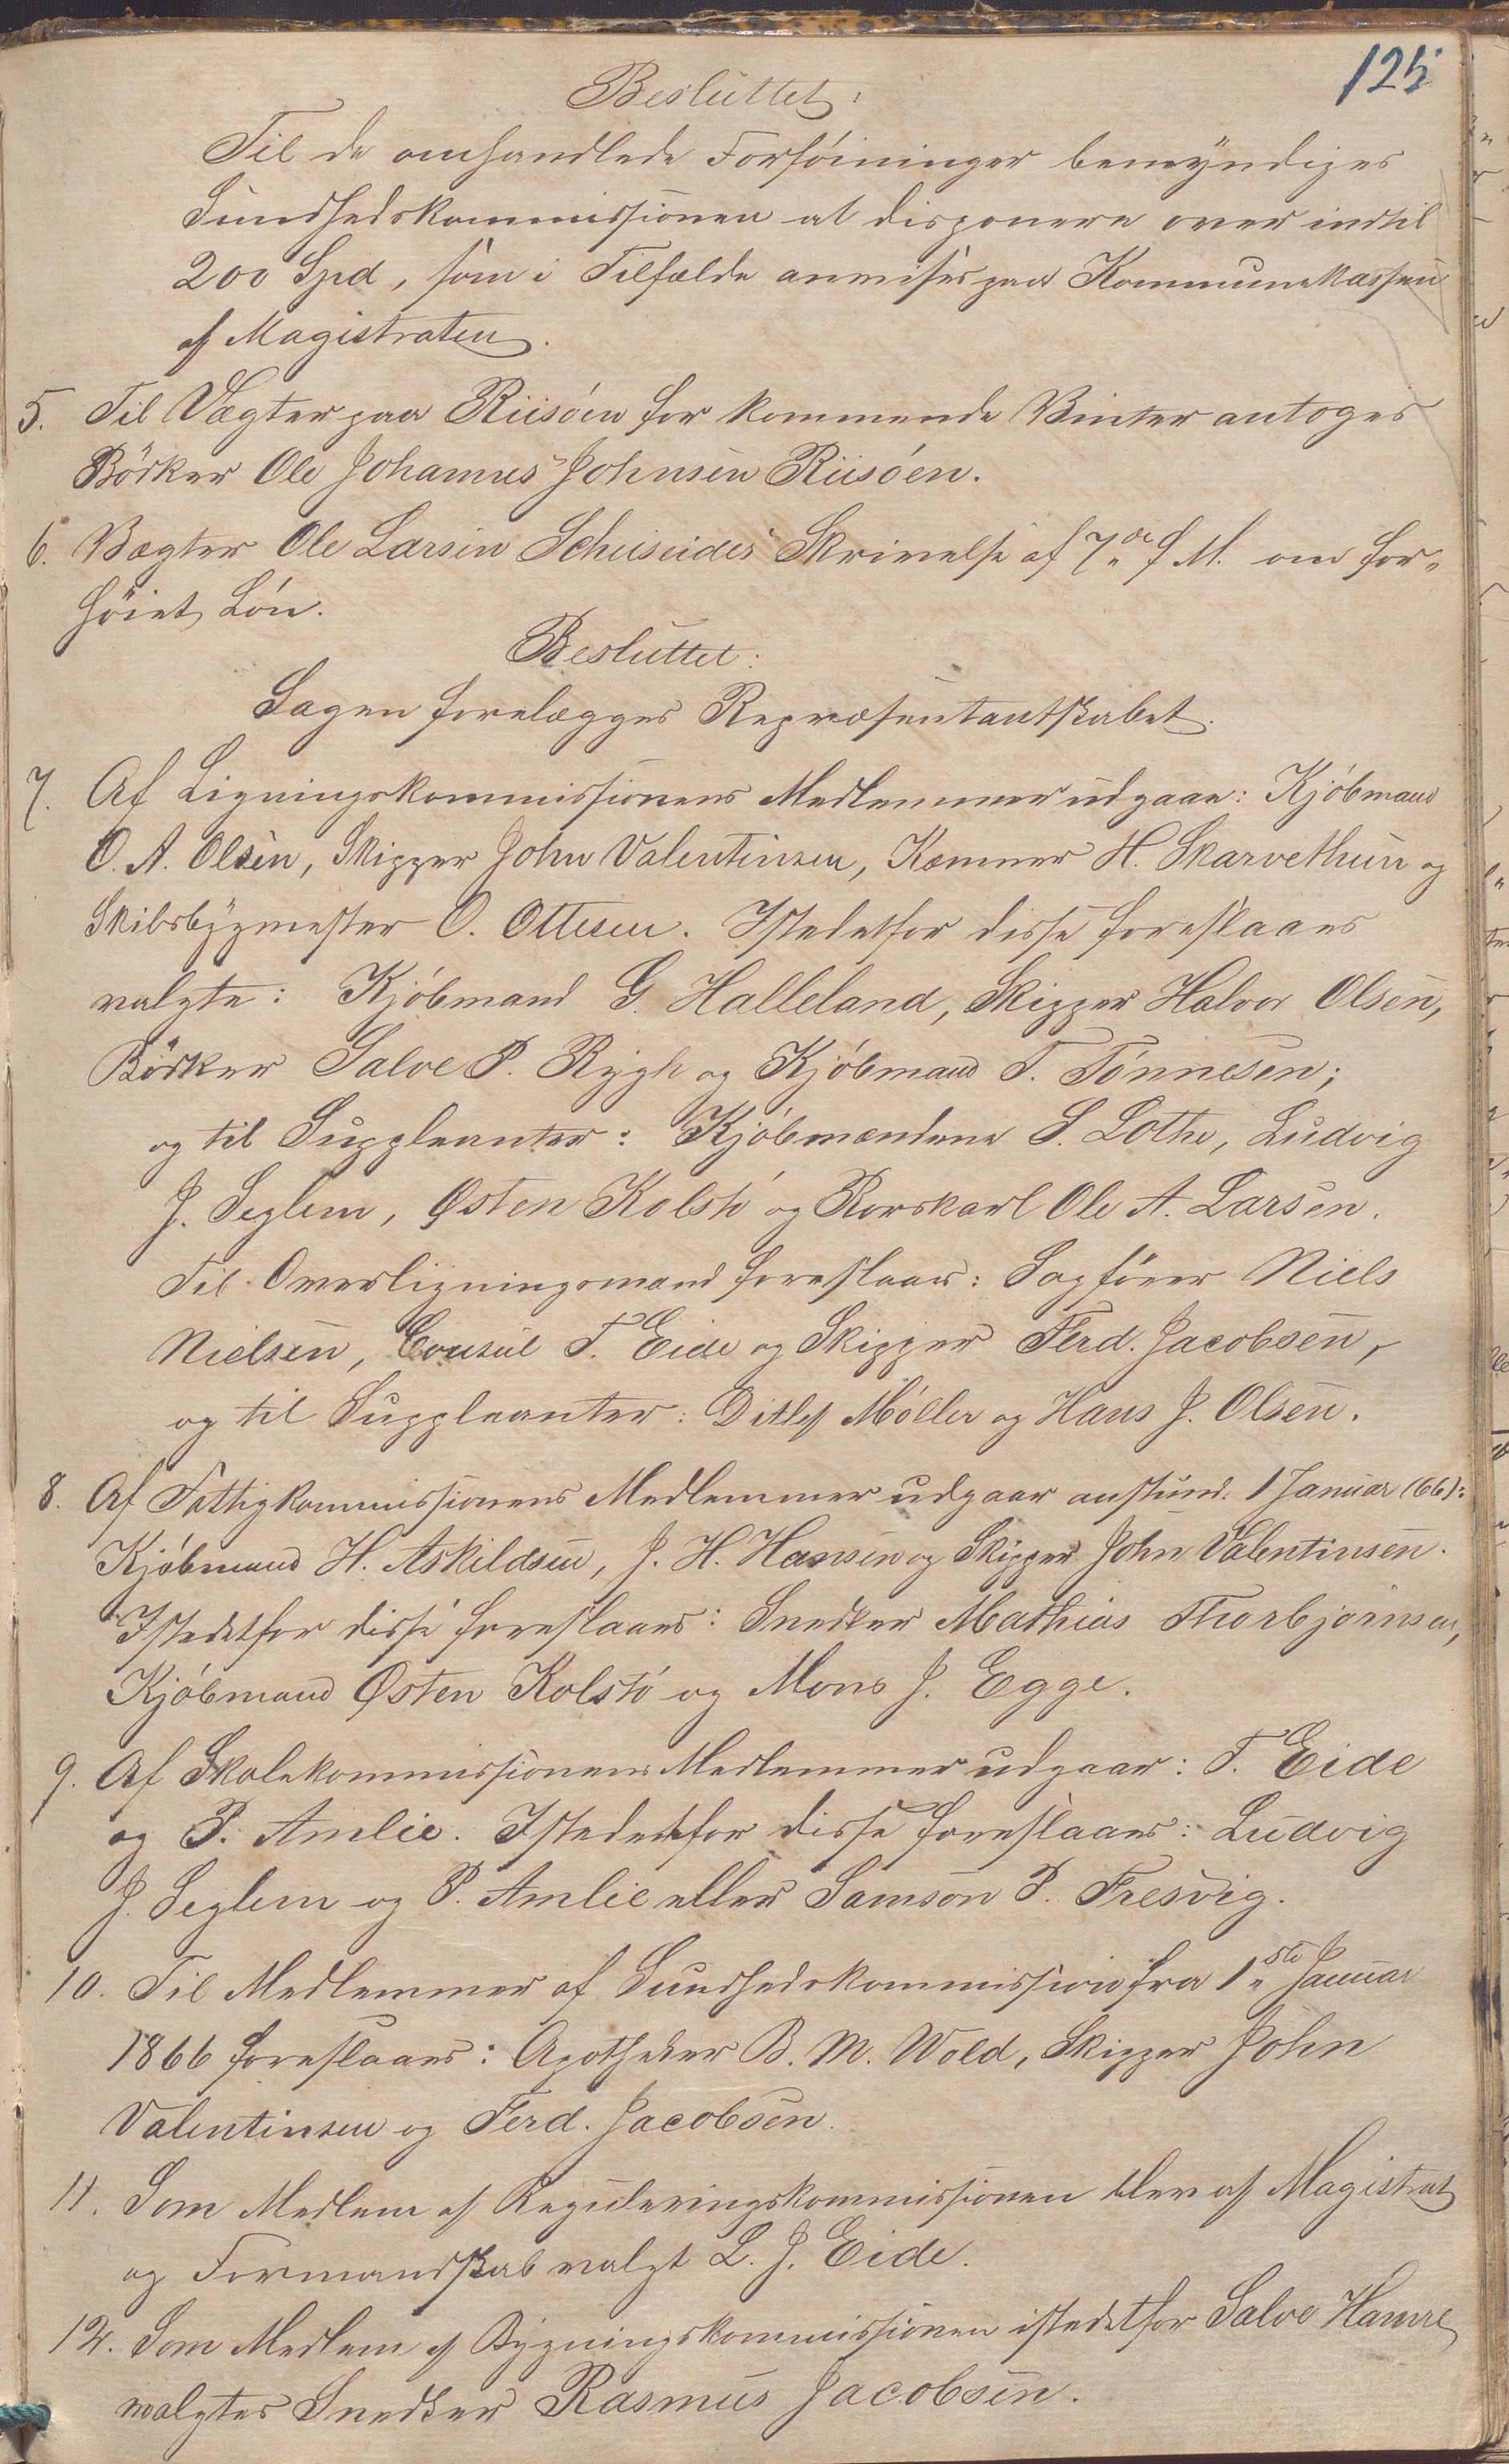 125
Besluttet:
Til de omhandlede Forföininger bemyndiges
Sundhedskommissionen at disponere over indtil
200 Spd, som i Tilfælde anvises paa Kommunekassen
af Magistraten.
5. Til Vægter paa Riisöen for kommende Vinter antoges
Bödker Ole Johannes Johnsen Riisöen.
6. Vægter Ole Larsen Skrivelse af 7de f. M. om for-
höiet Lön.
Besluttet:
Sagen forelægges Repræsentantskabet.
7. Af Ligningskommissionens Medlemmer udgaae: Kjöbmand
O. A. Olsen, Skipper John Valentinsen, Kæmner H. Skarvethun og
Skibsbygmester O. Ottesen. Istedetfor disse foreslaaes
valgte: Kjöbmand G. Halleland, Skipper Halvor Olsen,
Bödker Salve P. Rygh og Kjöbmand T. Tönnesen;
og til Suppleanter: Kjöbmændene S. Lothe, Ludvig
J. Seglem, Østen Kolstö og Rorskarl Ole A. Larsen.
Til Overligningsmænd foreslaaes: Sagförer Niels
Nielsen, Consul T. Eide og Skipper Ferd. Jacobsen,
og til Suppleanter: Ditlef Möller og Hans J. Olsen.
8. Af Fattigkommissionens Medlemmer udgaar anstund. 1 Januar (66):
Kjöbmand H. Askildsen, J. H. Hansen og Skipper John Valentinsen.
Istedetfor disse foreslaaes: Snedker Mathias Thorbjörnsen,
Kjöbmand Østen Kolstö og Mons J. Egge.
9. Af Skolekommissionens Medlemmer udgaar: T. Eide
og P. Amlie. Istedetfor disse foreslaaes: Ludvig
J. Seglem og P. Amlie eller Samson P. Fresvig.
10. Til Medlemmer af Sundhedskommission fra 1ste Januar
1866 foreslaaes: Apotheker B. M. Wold, Skipper John
Valentinsen og Ferd. Jacobsen.
11. Som Medlem af Reguleringskommissionen blev af Magistrat
og Formandskab valgt L. J. Eide.
12. Som Medlem af Bygningskommissionen istedetfor Salve Hamre
valgtes Snedker Rasmus Jacobsen.